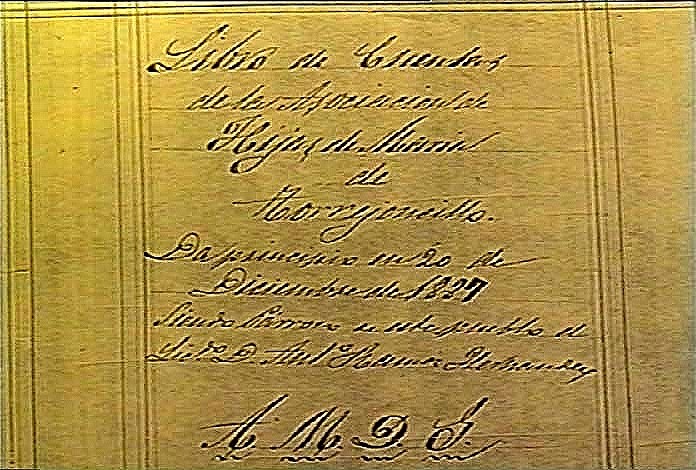 Libro de Cuentas
de la Asociacion de
Hijas de Maria
de
Torrejoncillo.
Da principio en 20 de
Diciembre de 1897
Siendo Parroco de este pueblo el
Licdo D. Antº Ramos Hernandez
A. M. D. G.